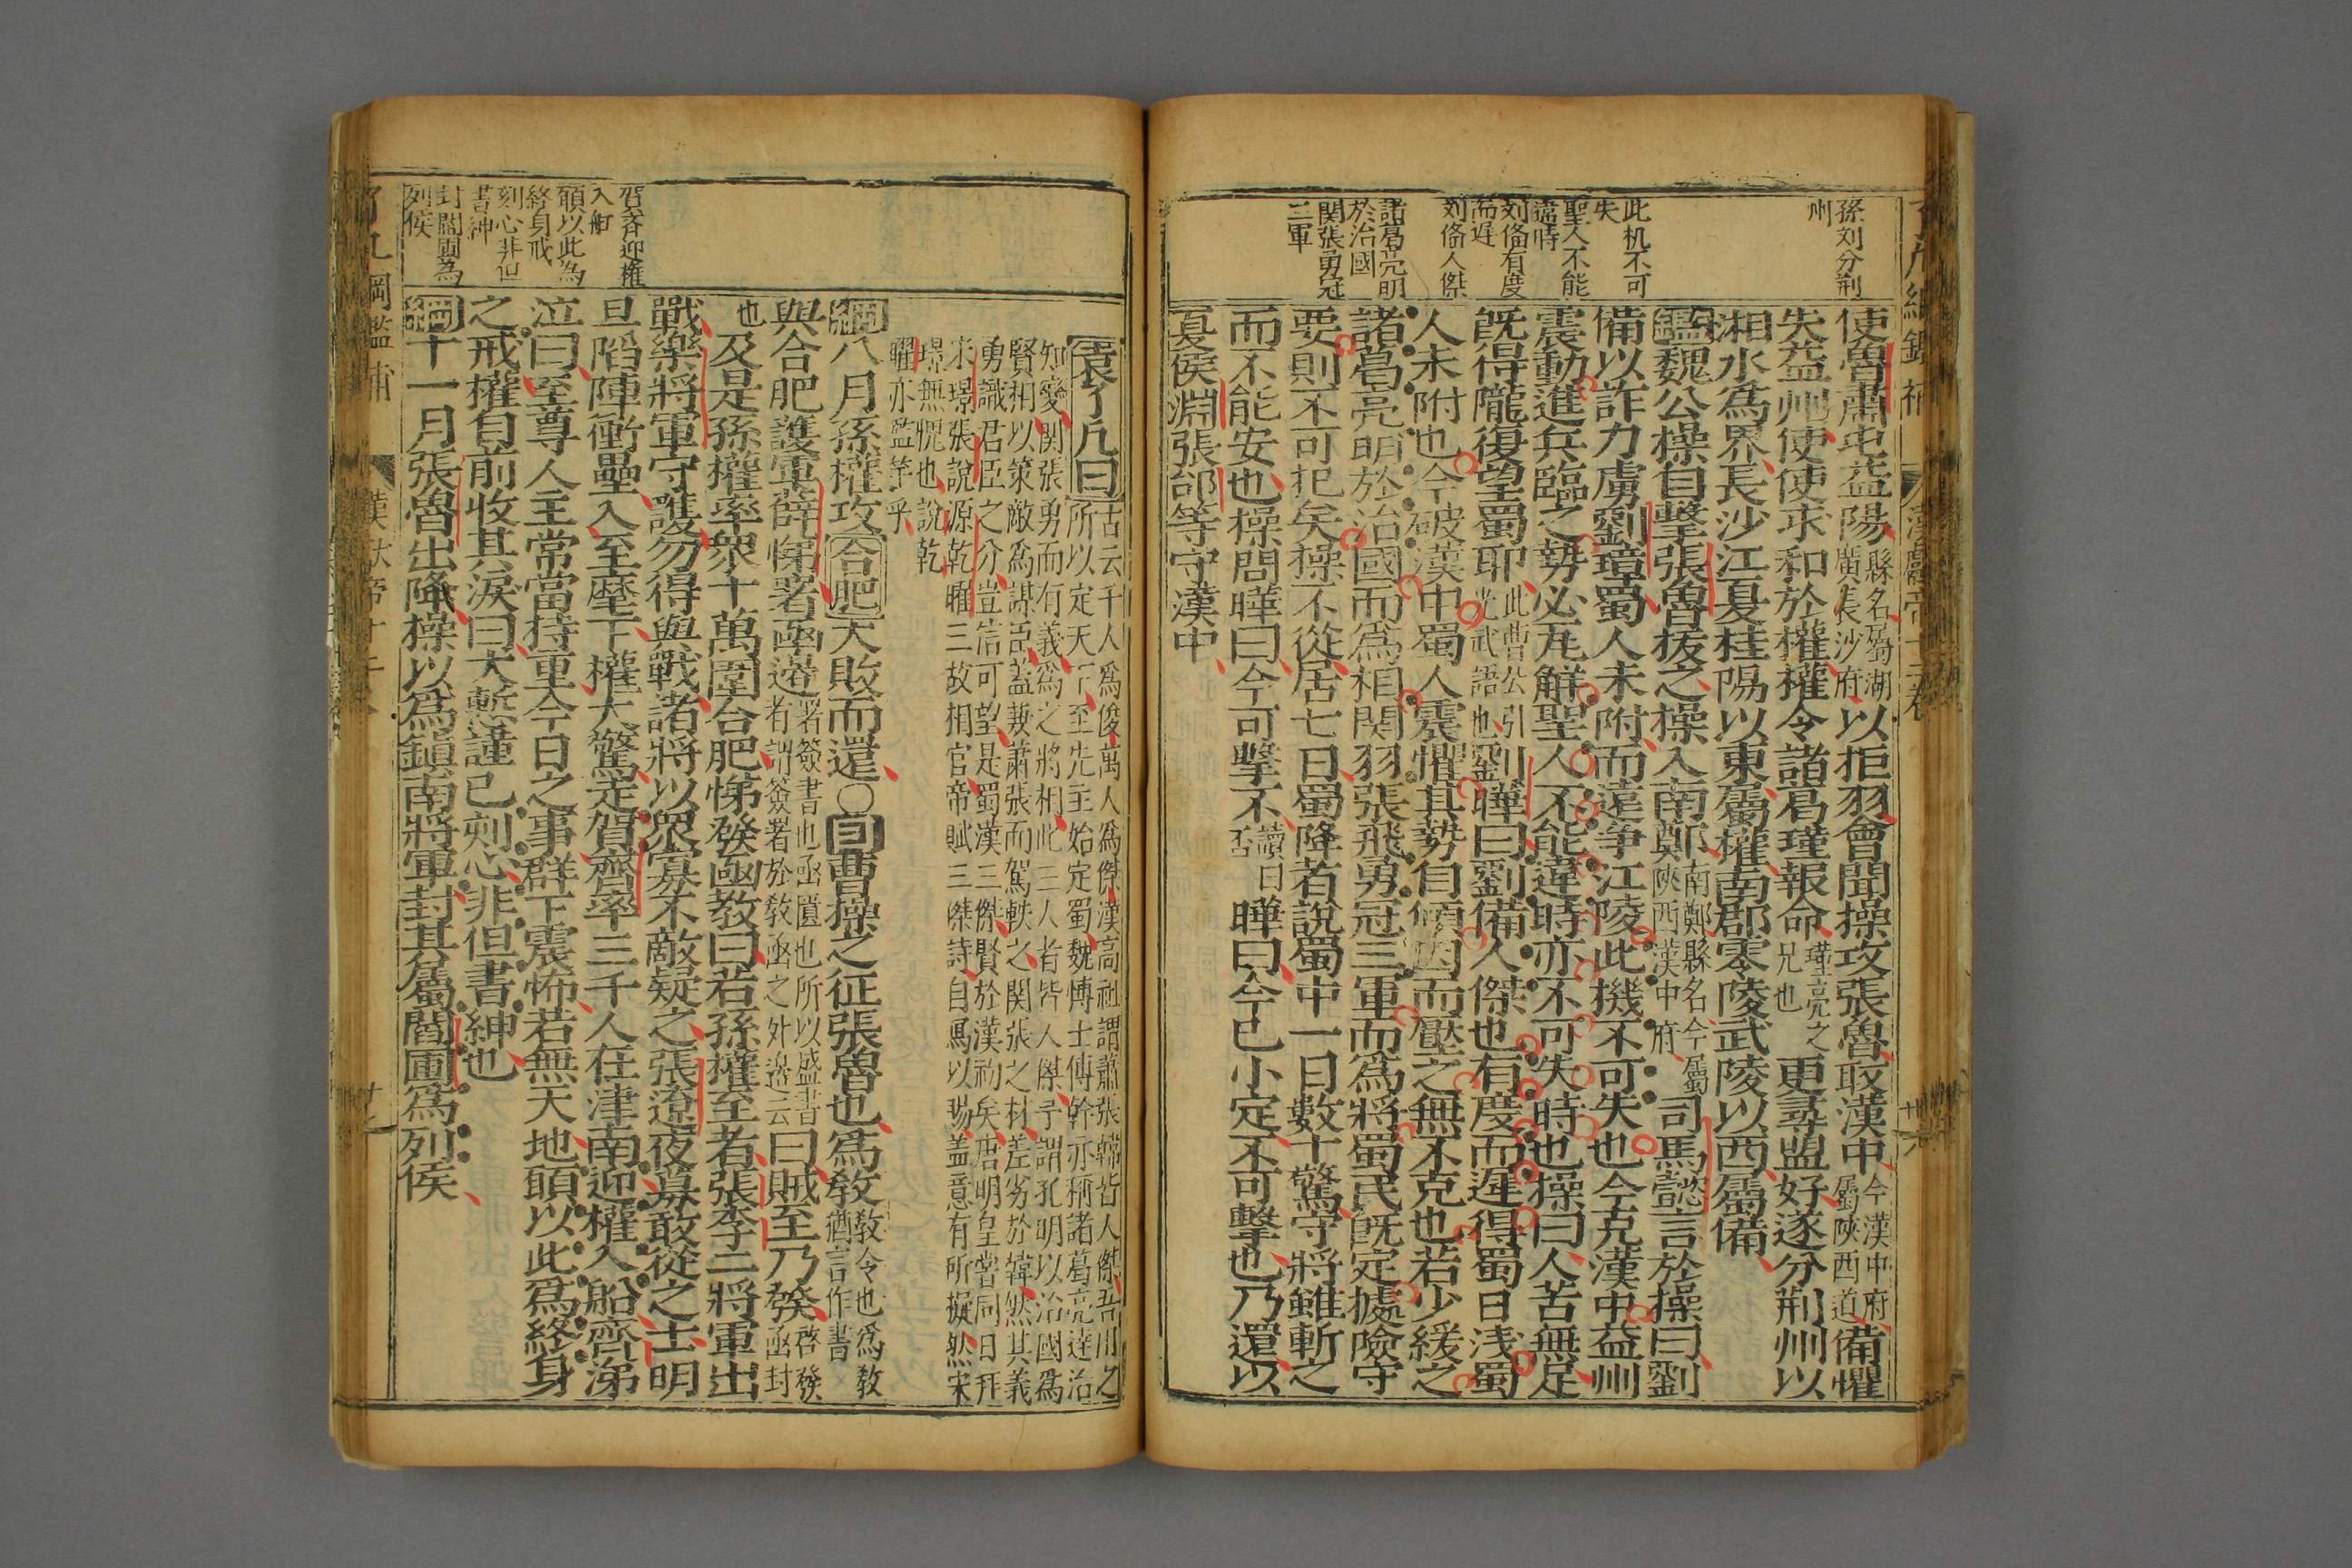 孫刘分荆
州
此机不可
失
聖人不能
違時
刘俻有度
而遲
刘俻人傑
諸葛亮明
於治國
関張勇冠
三軍
使魯肅屯益陽縣名屬湖廣長沙府以拒羽會聞操攻張魯取漢中今漢中府屬陝西道備懼
失益州使使求和於權權令諸葛瑾報命瑾亮之兄也更尋盟好遂分荆州以
湘水爲界長沙江夏桂陽以東屬權南郡零陵武陵以西屬備
鑑魏公操自擊張魯拔之操入南鄭南鄭縣名今屬陝西漢中府司馬懿言於操曰劉
備以詐力虜劉璋蜀人未附而遠争江陵此機不可失也今克漢中益州
震動進兵臨之勢必瓦解聖人不能違時亦不可失時也操曰人苦無足
旣得隴復望蜀耶此曹公引光武語也劉曄曰劉備人傑也有度而遲得蜀日浅蜀
人未附也今破漢中蜀人震懼其勢自傾因而壓之無不克也若少緩之
諸葛亮明於治國而爲相関羽張飛勇冠三軍而爲將蜀民旣定據險守
要則不可犯矣操不從居七日蜀降者說蜀中一日數十驚守將雖斬之
而不能安也操問曄曰今可擊不讀曰否曄曰今已小定不可擊也乃還以
夏侯淵張郃等守漢中
袁了凡曰古云千人爲俊萬人爲傑漢高祖謂蕭張韓皆人傑吾用之
所以定天下至先主始定蜀魏愽士傅幹亦稱諸葛亮達治
知變関張勇而有義爲之將相此三人者皆人傑予謂孔明以治國爲
賢相以策敵爲謀臣蓋兼蕭張而駕軼之関張之材差劣於韓然其義
勇識君臣之分豈信可望是蜀漢三傑賢於漢初矣唐明皇嘗同日拜
宋璟張說源乾曜三故相官帝賦三傑詩自寫以賜盖意有所擬然宋
璟無愧也說乾
曜亦監竽乎
綱八月孫權攻合肥大敗而還○目曹操之征張魯也爲敎敎令也爲敎猶言作書
與合肥護軍薛悌署函邊署簽書也函匱也所以盛書者謂簽署於敎函之外邊云曰賊至乃發啓發函封
也及是孫權率衆十萬圍合肥悌發函教曰若孫權至者張李二將軍出
戰樂將軍守護勿得與戰諸將以衆寡不敵疑之張遼夜募敢從之士明
旦陷陣衝壘入至麾下權大驚走賀齊率三千人在津南迎權入船齊涕
泣曰至尊人主常當持重今日之事群下震怖若無天地願以此爲終身
之戒權自前收其淚曰大慙謹已刻心非但書紳也
綱十一月張魯出降操以爲鎭南將軍封其屬閻圃爲列侯
賀斉迎權
入船
願以此為
終身戒
刻心非但
書紳
封閻圃為
列侯
了凡綱鑑補